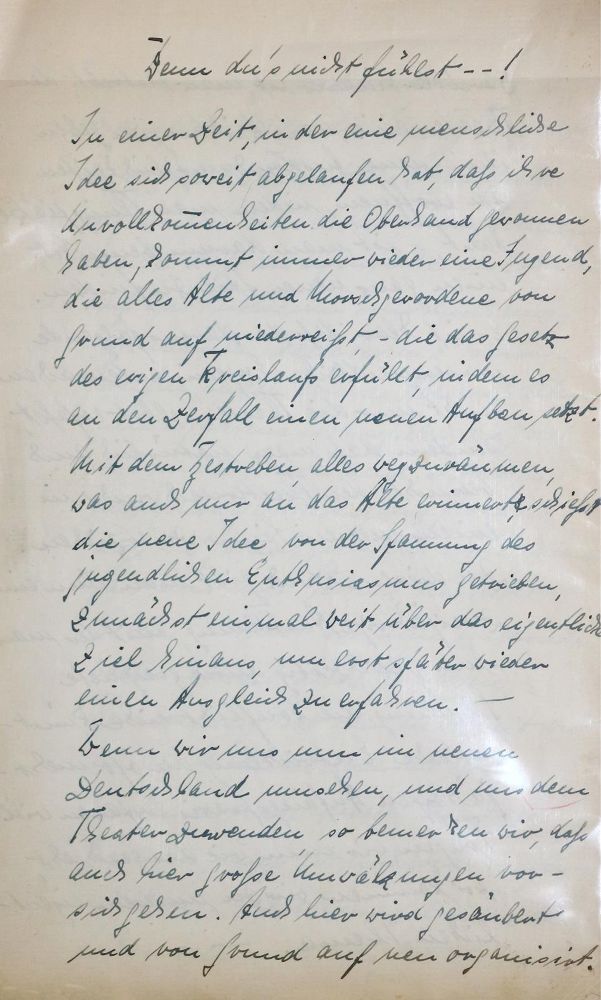 Wenn du's nicht fühlst --!
In einer Zeit, in der eine menschliche
Idee sich soweit abgelaufen hat, daß ihre
Unvollkom̄enheiten die Oberhand gewonnen
haben, kommt immer wieder eine Jugend,
die alles Alte und Morschgewordene von
Grund auf niederreißt, - die das Gesetz
des ewigen Kreislaufs erfüllt, indem es
an den Zerfall einen neuen Aufbau setzt.
Mit dem Bestreben, alles wegzuräumen,
was auch nur an das Alte erinnert, schießt
die neue Idee von der Spannung des
jugendlichen Enthusiasmus getrieben,
zunächst einmal weit über das eigentliche
Ziel hinaus, um erst später wieder
einen Ausgleich zu erfahren. —
Wenn wir uns nun im neuen
Deutschland umsehen, und uns dem
Theater zuwenden, so bemerken wir, daß
auch hier große Umwälzungen vor-
sichgehen. Auch hier wird gesäubert
und von Grund auf neu organisirt.